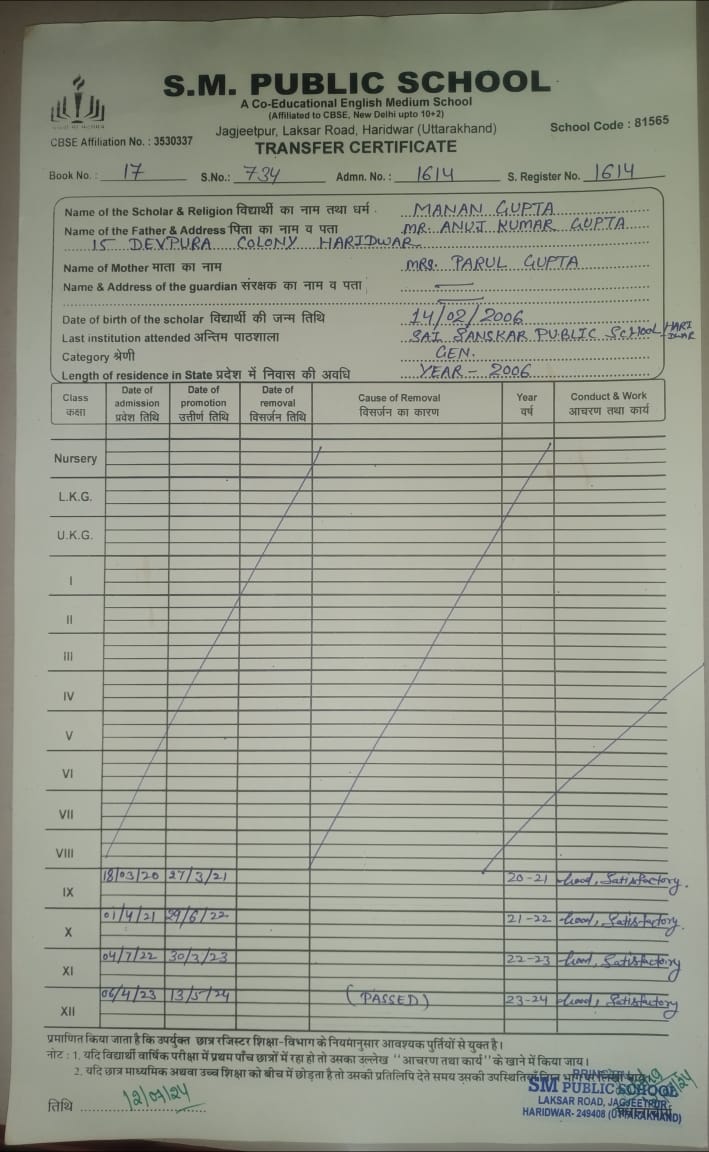 S.M. PUBLIC SCHOOL
A Co-Educational English Medium School
(Affiliated to CBSE, New Delhi upto 10+2)
Jagjeetpur, Laksar Road, Haridwar (Uttarakhand)
CBSE Affiliation No. : 3530337
School Code : 81565
TRANSFER CERTIFICATE
Book No. : 17 S.No.: 734 Admn. No. : 1614 S. Register No. 1614
Name of the Scholar & Religion विद्यार्थी का नाम तथा धर्म MANAN GUPTA
Name of the Father & Address पिता का नाम व पता MR. ANUJ KUMAR GUPTA
15 DEVPURA COLONY HARIDWAR
Name of Mother माता का नाम MRS. PARUL GUPTA
Name & Address of the guardian संरक्षक का नाम व पता
Date of birth of the scholar विद्यार्थी की जन्म तिथि 14/02/2006
Last institution attended अन्तिम पाठशाला SAI SANSKAR PUBLIC SCHOOL HARIDWAR
Category श्रेणी GEN.
Length of residence in State प्रदेश में निवास की अवधि YEAR - 2006
Class कक्षा
Date of admission प्रवेश तिथि
Date of promotion उत्तीर्ण तिथि
Date of removal विसर्जन तिथि
Cause of Removal विसर्जन का कारण
Year वर्ष
Conduct & Work आचरण तथा कार्य
Nursery
L.K.G.
U.K.G.
I
II
III
IV
V
VI
VII
VIII
IX 18/03/20 27/3/21 20-21 Good, Satisfactory.
X 01/4/21 29/6/22 21-22 Good, Satisfactory.
XI 04/7/22 30/3/23 22-23 Good, Satisfactory
XII 06/4/23 13/5/24 (PASSED) 23-24 Good, Satisfactory
प्रमाणित किया जाता है कि उपर्युक्त छात्र रजिस्टर शिक्षा-विभाग के नियमानुसार आवश्यक पुर्तियों से युक्त है।
नोट : 1. यदि विद्यार्थी वार्षिक परीक्षा में प्रथम पाँच छात्रों में रहा हो तो उसका उल्लेख "आचरण तथा कार्य" के खाने में किया जाय।
2. यदि छात्र माध्यमिक अथवा उच्च शिक्षा को बीच में छोड़ता है तो उसकी प्रतिलिपि देते समय उसकी उपस्थिति
तिथि 12/07/24
SM PUBLIC SCHOOL
LAKSAR ROAD, JAGJEETPUR
HARIDWAR- 249408 (UTTARAKHAND)